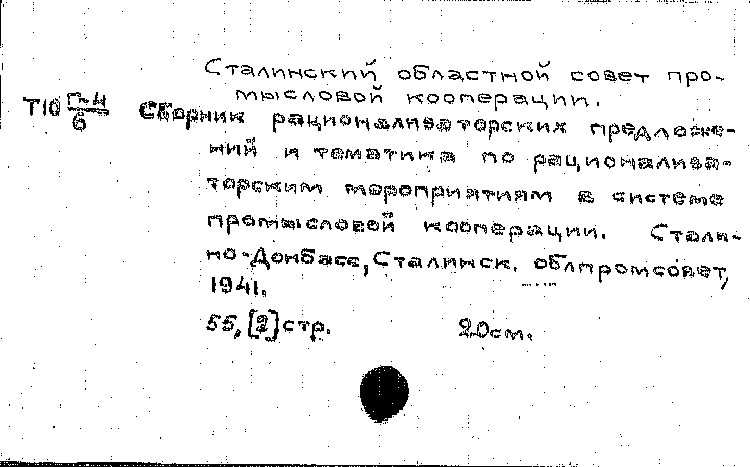 Сталинский областной совет про-
мысловой кооперации.
Т10 П-4/6 Сборник рационализаторских предложе-
ний и тематика по рационализа-
торским мероприятиям в системе
промысловой кооперации. Стали-
но-Донбасс, Сталинск. облпромсовет,
1941.
55, [2] стр. 20см.